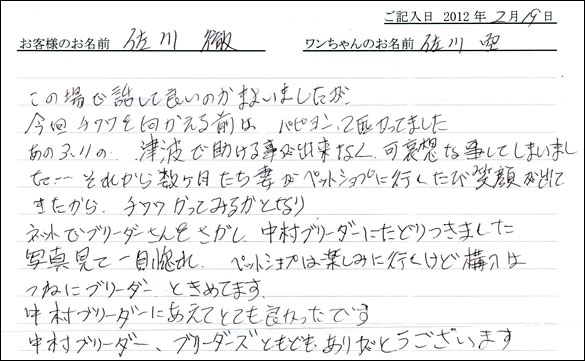 ご記入日 2012年2月19日
お客様のお名前 佐川 徹 ワンちゃんのお名前 佐川 空
この場で話して良いのかまよいましたが、
今回チワワを向かえる前は パピヨン、2匹かってました
あの3.11の、津波で助ける事が出来なく、可哀想な事してしまいまし
た… それから数ヶ月たち妻がペットショプに行くたび笑顔が出て
きたから、チワワかってみるかとなり
ネットでブリーダーさんをさがし、中村ブリーダーにたどりつきました
写真見て一目惚れ、ペットショプは楽しみに行くけど購入は
つねにブリーダーときめてます。
中村ブリーダーにあえてとても良かったです
中村ブリーダー、ブリーダーズともども、ありがとうございます